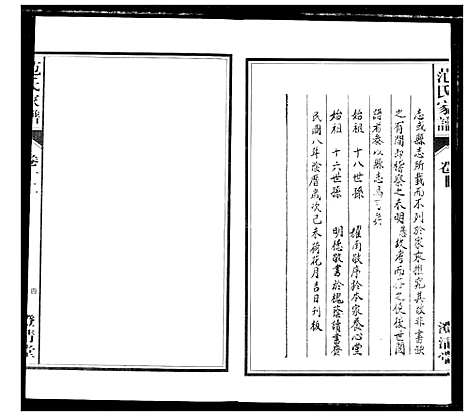 范氏家譜
卷四
澄清堂
志或縣志所載而不列於家乘想究其故非書缺
之有間即稽察之未明急欲考而正之使後世閱
譜者參以縣志焉可矣
始祖 十八世孫 耀南敬序於本家養心堂
始祖 十六世孫 明德敬書於槐蔭讀書齋
民國八年陰曆歲次己未荷花月吉日刊板
范氏家譜
卷十二
四
澄清堂